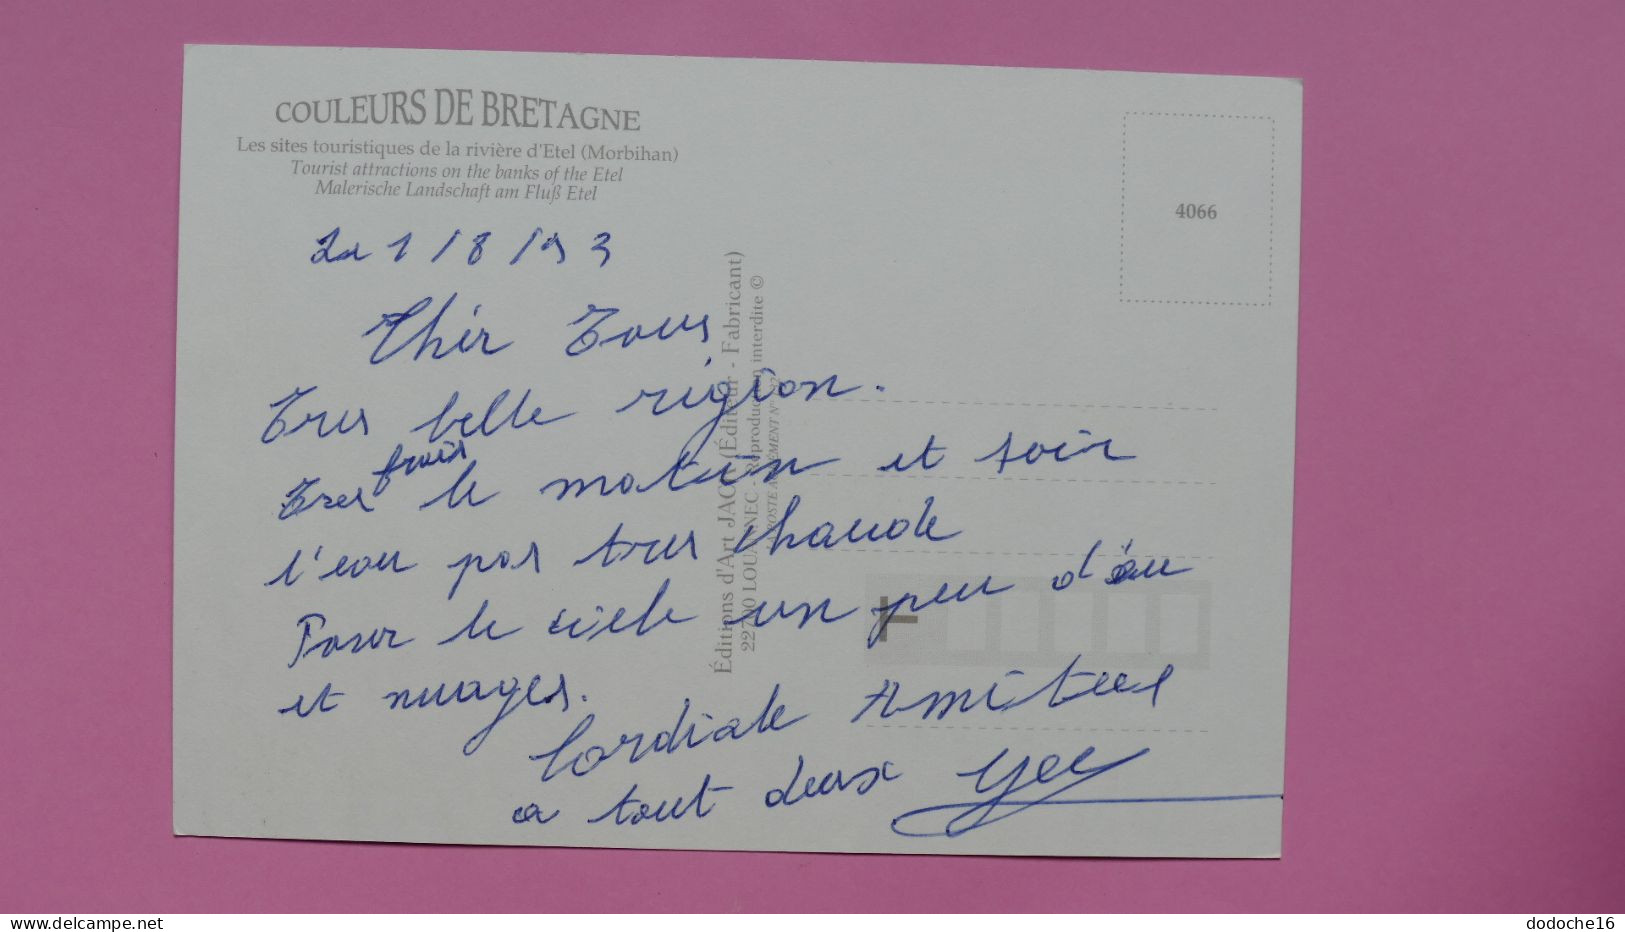 COULEURS DE BRETAGNE
Les sites touristiques de la rivière d'Etel (Morbihan)
Tourist attractions on the banks of the Etel
Malerische Landschaft am Fluß Etel
4066
1/8/93
Cher Tous
Tres belle région.
Tres frais le matin et soir
l'eau pas tres chaude
Pour le ciele un peu d'eau
et nuages.
Cordiale Amitées
a tout deux
Éditions d'Art JACK (Éditeur - Fabricant)
22700 LOUANNEC - Reproduction interdite ©
LA POSTE AGRÉMENT N°
dodoche16
www.delcampe.net